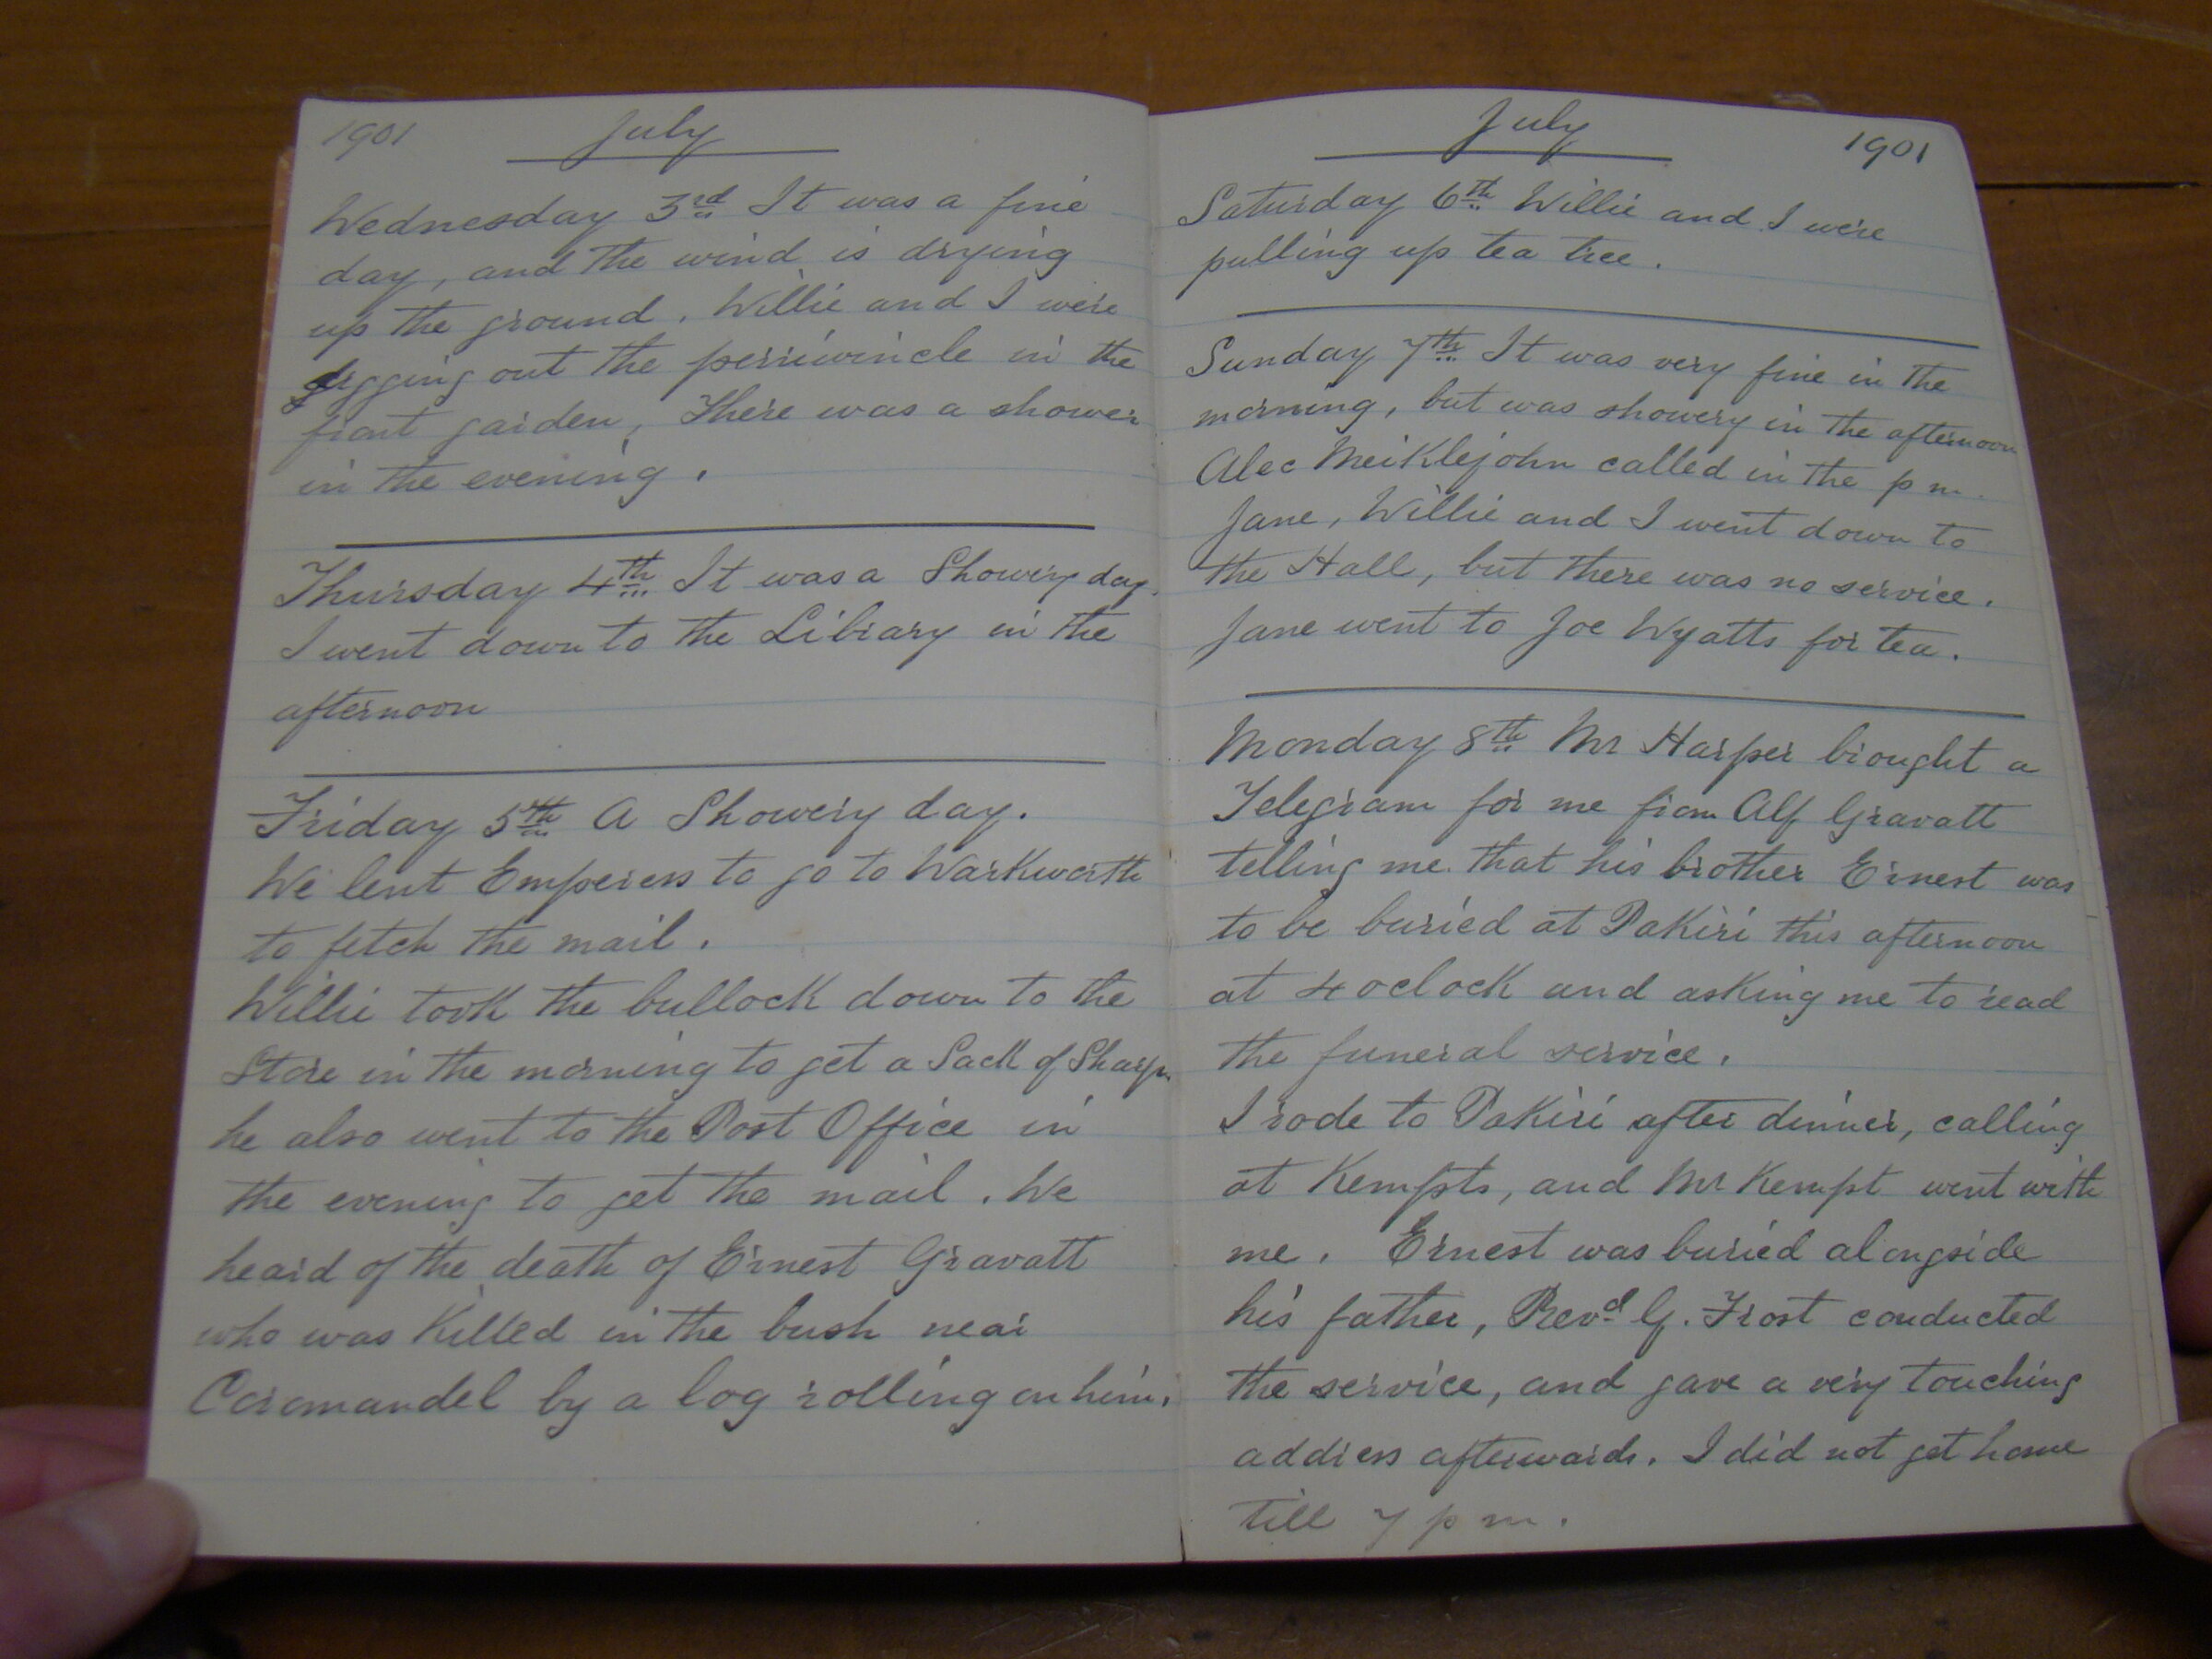 1901 July
Wednesday 3rd It was a fine
day, and the wind is drying
up the ground. Willie and I were
digging out the periwincle in the
front garden, There was a shower
in the evening.
Thursday 4th It was a Showery day.
I went down to the Library in the
afternoon
Friday 5th A Showery day.
We lent Emperess to go to Warkworth
to fetch the mail.
Willie took the bullock down to the
Store in the morning to get a Sack of Sharps.
he also went to the Post Office in
the evening to get the mail. We
heard of the death of Ernest Gravatt
who was Killed in the bush near
Coromandel by a log rolling on him.
July 1901
Saturday 6th Willie and I were
pulling up tea tree.
Sunday 7th It was very fine in the
morning, but was showery in the afternoon
Alec Meiklejohn called in the p m.
Jane, Willie and I went down to
the Hall, but there was no service.
Jane went to Joe Wyatts for tea.
Monday 8th Mr Harper brought a
Telegram for me from Alf Gravatt
telling me that his brother Ernest was
to be buried at Pakiri this afternoon
at 4 oclock and asking me to read
the funeral service.
I rode to Pakiri after dinner, calling
at Kempts, and Mr Kempt went with
me. Ernest was buried alongside
his father, Revd G. Frost conducted
the service, and gave a very touching
address afterwards. I did not get home
till 7 p m.